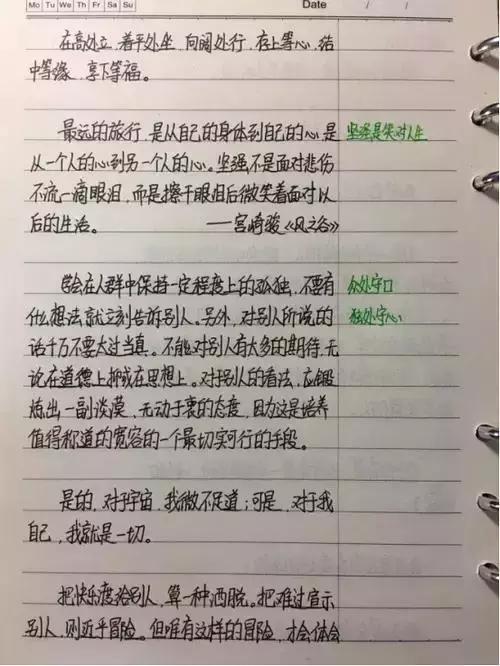 Mo Tu We Th Fr Sa Su Date / /
在高处立，着平处坐，向阔处行，存上等心，结
中等缘，享下等福。
最远的旅行，是从自己的身体到自己的心，是 坚强是笑对人生
从一个人的心到另一个人的心。坚强不是面对悲伤
不流一滴眼泪，而是擦干眼泪后微笑着面对以
后的生活。 ——宫崎骏《风之谷》
学会在人群中保持一定程度上的孤独，不要有 众处守口
什么想法就立刻告诉别人。另外，对别人所说的 独处守心
话千万不要太过当真。不能对别人有太多的期待，无
论在道德上抑或在思想上。对别人的看法，应锻
炼出一副淡漠，无动于衷的态度，因为这是培养
值得称道的宽容的一个最切实可行的手段。
是的，对于宇宙，我微不足道；可是，对于我
自己，我就是一切。
把快乐渡给别人，算一种洒脱。把难过宣示
别人，则近乎冒险。但唯有这样的冒险，才会体会